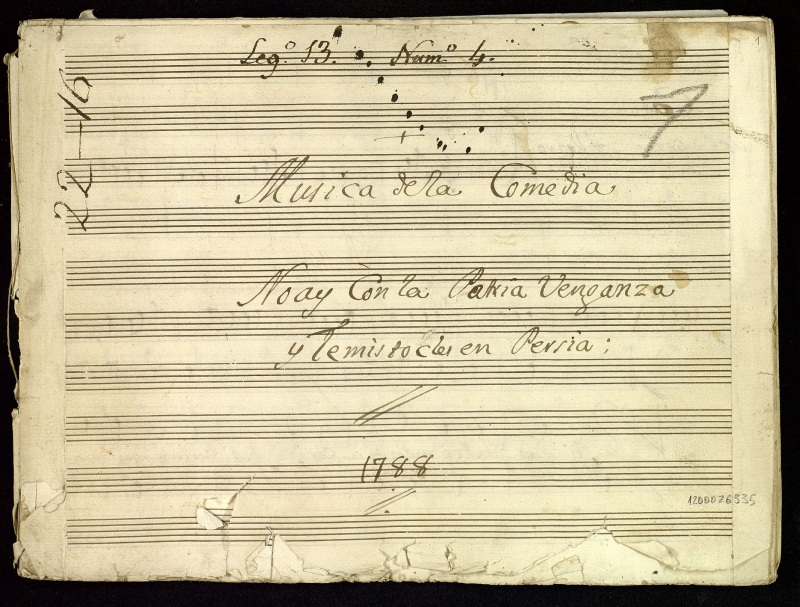 Leg.º 13. Num.º 4.
22-16
7
1
Musica de la Comedia
No ay Con la Patria Venganza
y Temistocles en Persia:
1788
1200026535